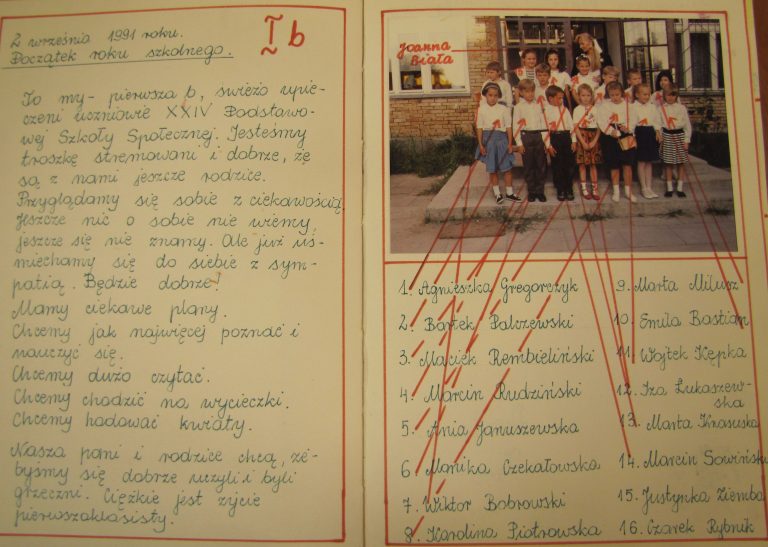 2 września 1991 roku.
Początek roku szkolnego.
I b
To my - pierwsza b, świeżo upie-
czeni uczniowie XXIV Podstawo-
wej Szkoły Społecznej. Jesteśmy
troszkę stremowani i dobrze, że
są z nami jeszcze rodzice.
Przyglądamy się sobie z ciekawością
Jeszcze nic o sobie nie wiemy,
jeszcze się nie znamy. Ale już uś-
miechamy się do siebie z sym-
patią. Będzie dobrze!
Mamy ciekawe plany.
Chcemy jak najwięcej poznać i
nauczyć się.
Chcemy dużo czytać.
Chcemy chodzić na wycieczki.
Chcemy hodować kwiaty.
Nasza pani i rodzice chcą, że-
byśmy się dobrze uczyli i byli
grzeczni. Ciężkie jest życie
pierwszoklasisty.
Joanna
Biała
1. Agnieszka Gregorczyk
2. Bartek Palczewski
3. Maciek Rembieliński
4. Marcin Rudziński
5. Ania Januszewska
6. Monika Czekałowska
7. Wiktor Bobrowski
8. Karolina Piotrowska
9. Marta Milusz
10. Emila Bastian
11. Wojtek Kępka
12. Iza Łukaszew-
ska
13. Marta
14. Marcin Sowiński
15. Justynka Ziemba
16. Czarek Rybnik